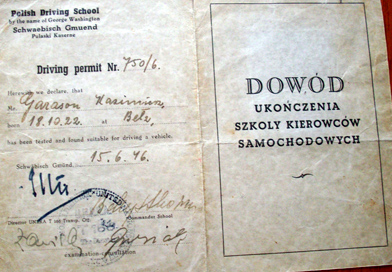 Polish Driving School
by the name of George Washington
Schwaebisch Gmuend
Pulaski Kaserne
Driving permit Nr. 750/6.
Herewith we declare, that
Mr. Kazimierz
born 18.10.22. at Belz,
has been tested and found suitable for driving a vehicle.
Schwäbisch Gmünd 15.6.46.
Director UNRRA T. Off.
Commander School
examination-consultation
DOWÓD
UKOŃCZENIA
SZKOLY KIEROWCÓW
SAMOCHODOWYCH